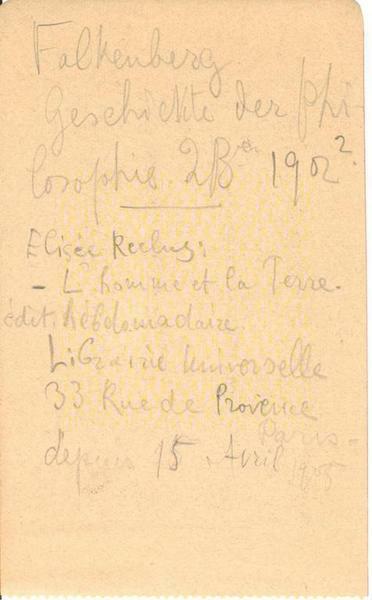 Falkenberg
Geschichte der Phi-
losophie. 2 Bde 1902²
Elisée Reclus:
- L'homme et la Terre.
édit. hébdomadaire.
Librairie Universelle
33 Rue de Provence
Paris-
depuis 15 Avril 1905